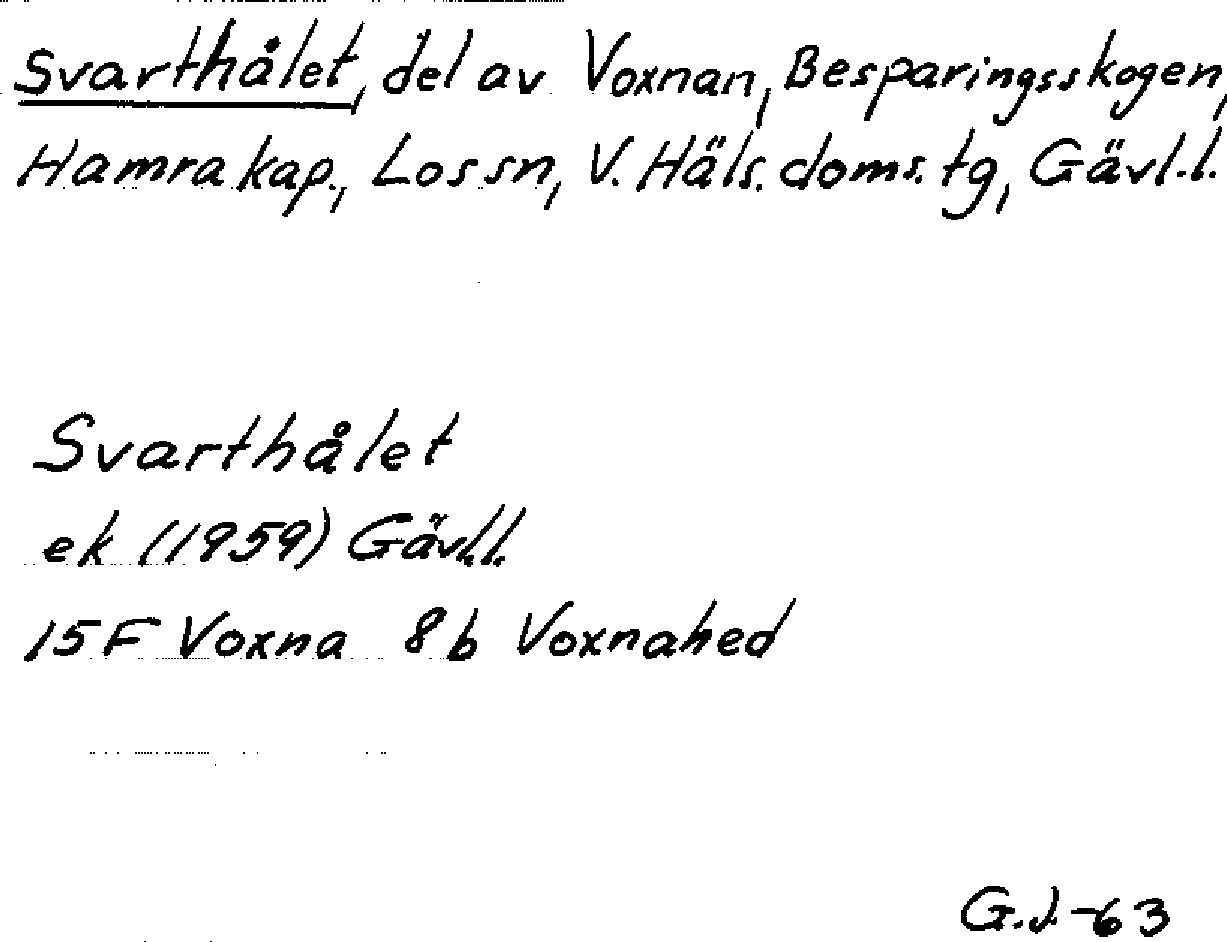 Svarthålet, del av Voxnan, Besparingsskogen,
Hamra kap., Los sn, V. Häls. doms. tg, Gävl.l.
Svarthålet
ek (1959) Gävl.l.
15F Voxna 8b Voxnahed
G.J.-63